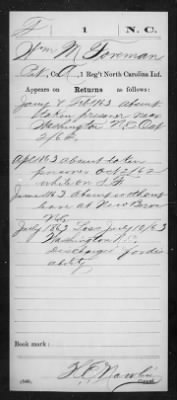 F 1 N.C.
Wm M Foreman
Pvt, Co. , 1 Reg't North Carolina Inf.
Appears on Returns as follows:
Jany & Feb 1863 absent
taken prisoner near
Washington N.C. Oct
2/62.
Apl 1863 absent taken
prisoner Oct 2/62
while on
June 1863 Absent without
leave at New Bern
N.C.
July 1863 Loss July 10/63
Washington N.C.
discharged for dis
ability
Book mark:
Copyist.